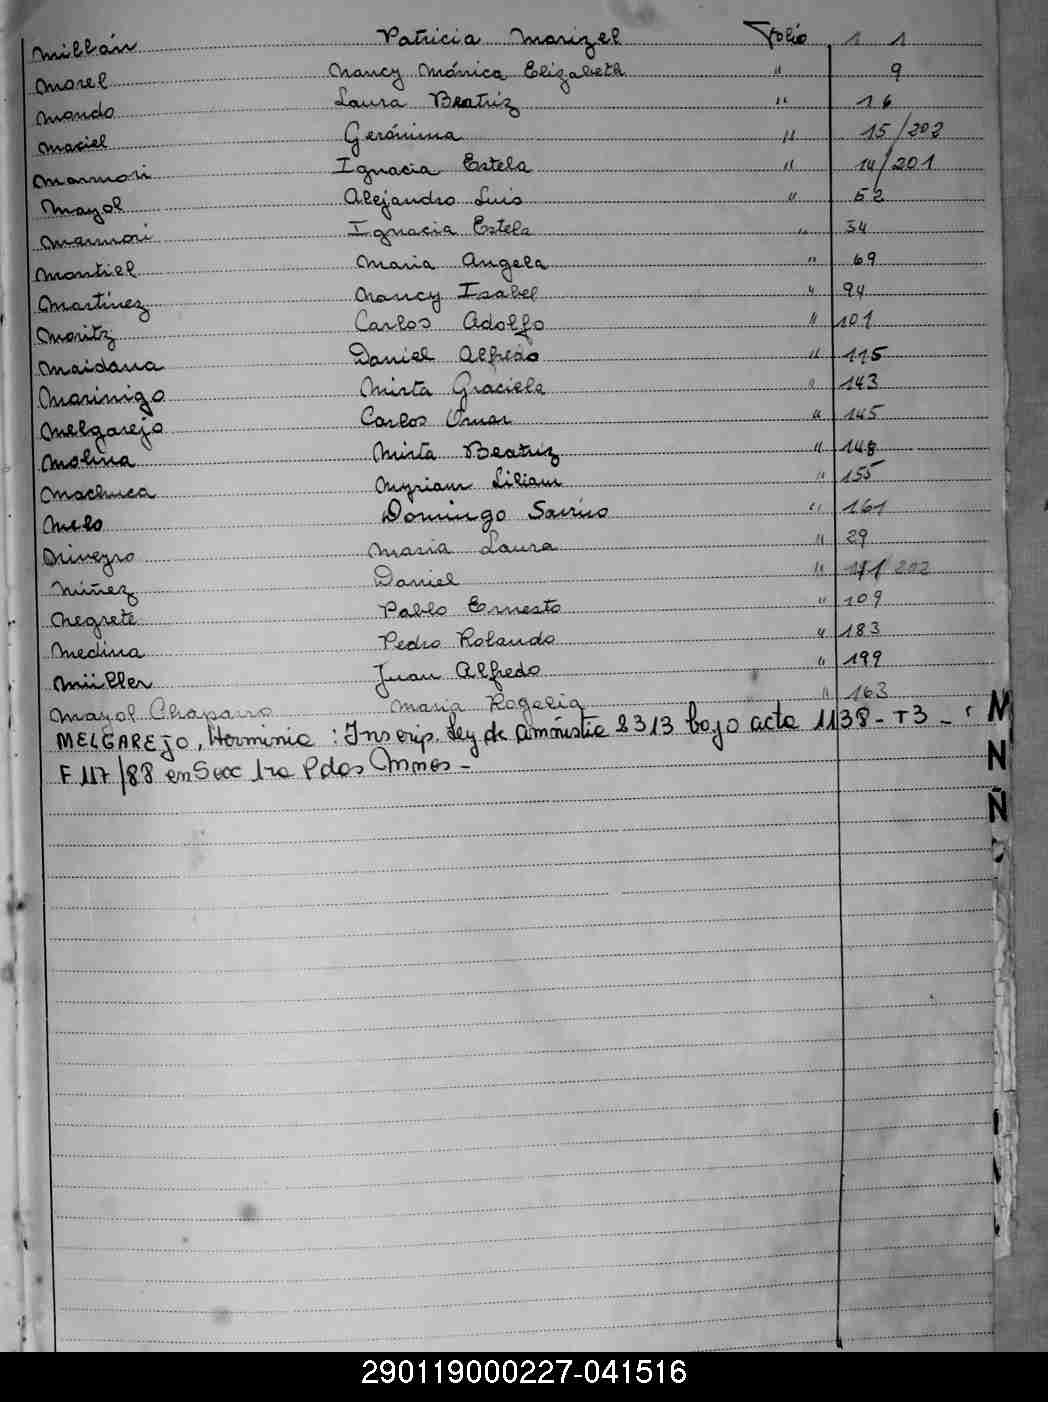 Millán Patricia Marizel Folio 11
Morel Nancy Mónica Elizabeth " 9
Mando Laura Beatriz " 16
Maciel Gerónima " 15/202
Marmori Ignacia Estela " 14/201
Mayol Alejandro Luis " 52
Marmori Ignacia Estela " 54
Montiel Maria Angela " 69
Martínez Nancy Isabel " 94
Moritz Carlos Adolfo " 101
Maidana Daniel Alfredo " 115
Marinigo Mirta Graciela " 143
Melgarejo Carlos Omar " 145
Molina Mirta Beatriz " 148
Machuca Myriam Liliam " 155
Melo Domingo " 161
Maria Laura " 29
Núñez Daniel "
Negrete Pablo Ernesto " 109
Medina Pedro Rolando " 183
Müller Juan Alfredo " 199
Mayol Chaparro Maria Rogelia " 163
MELGAREJO, Herminia : Inscrip. Ley de Amnistia 8313 bajo acta 1138 - T3 -
F 117/88 en Secc 1ra Pdos
M
N
Ñ
290119000227-041516